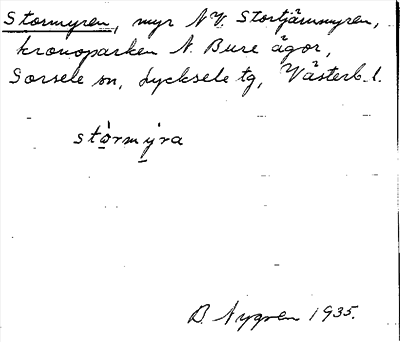 Stormyren, myr N V. Stortjärnmyren,
kronoparken N. Bure ägor,
Sorsele sn, Lycksele tg, Västerb. l.
stòrmýra
B. Nygren 1935.